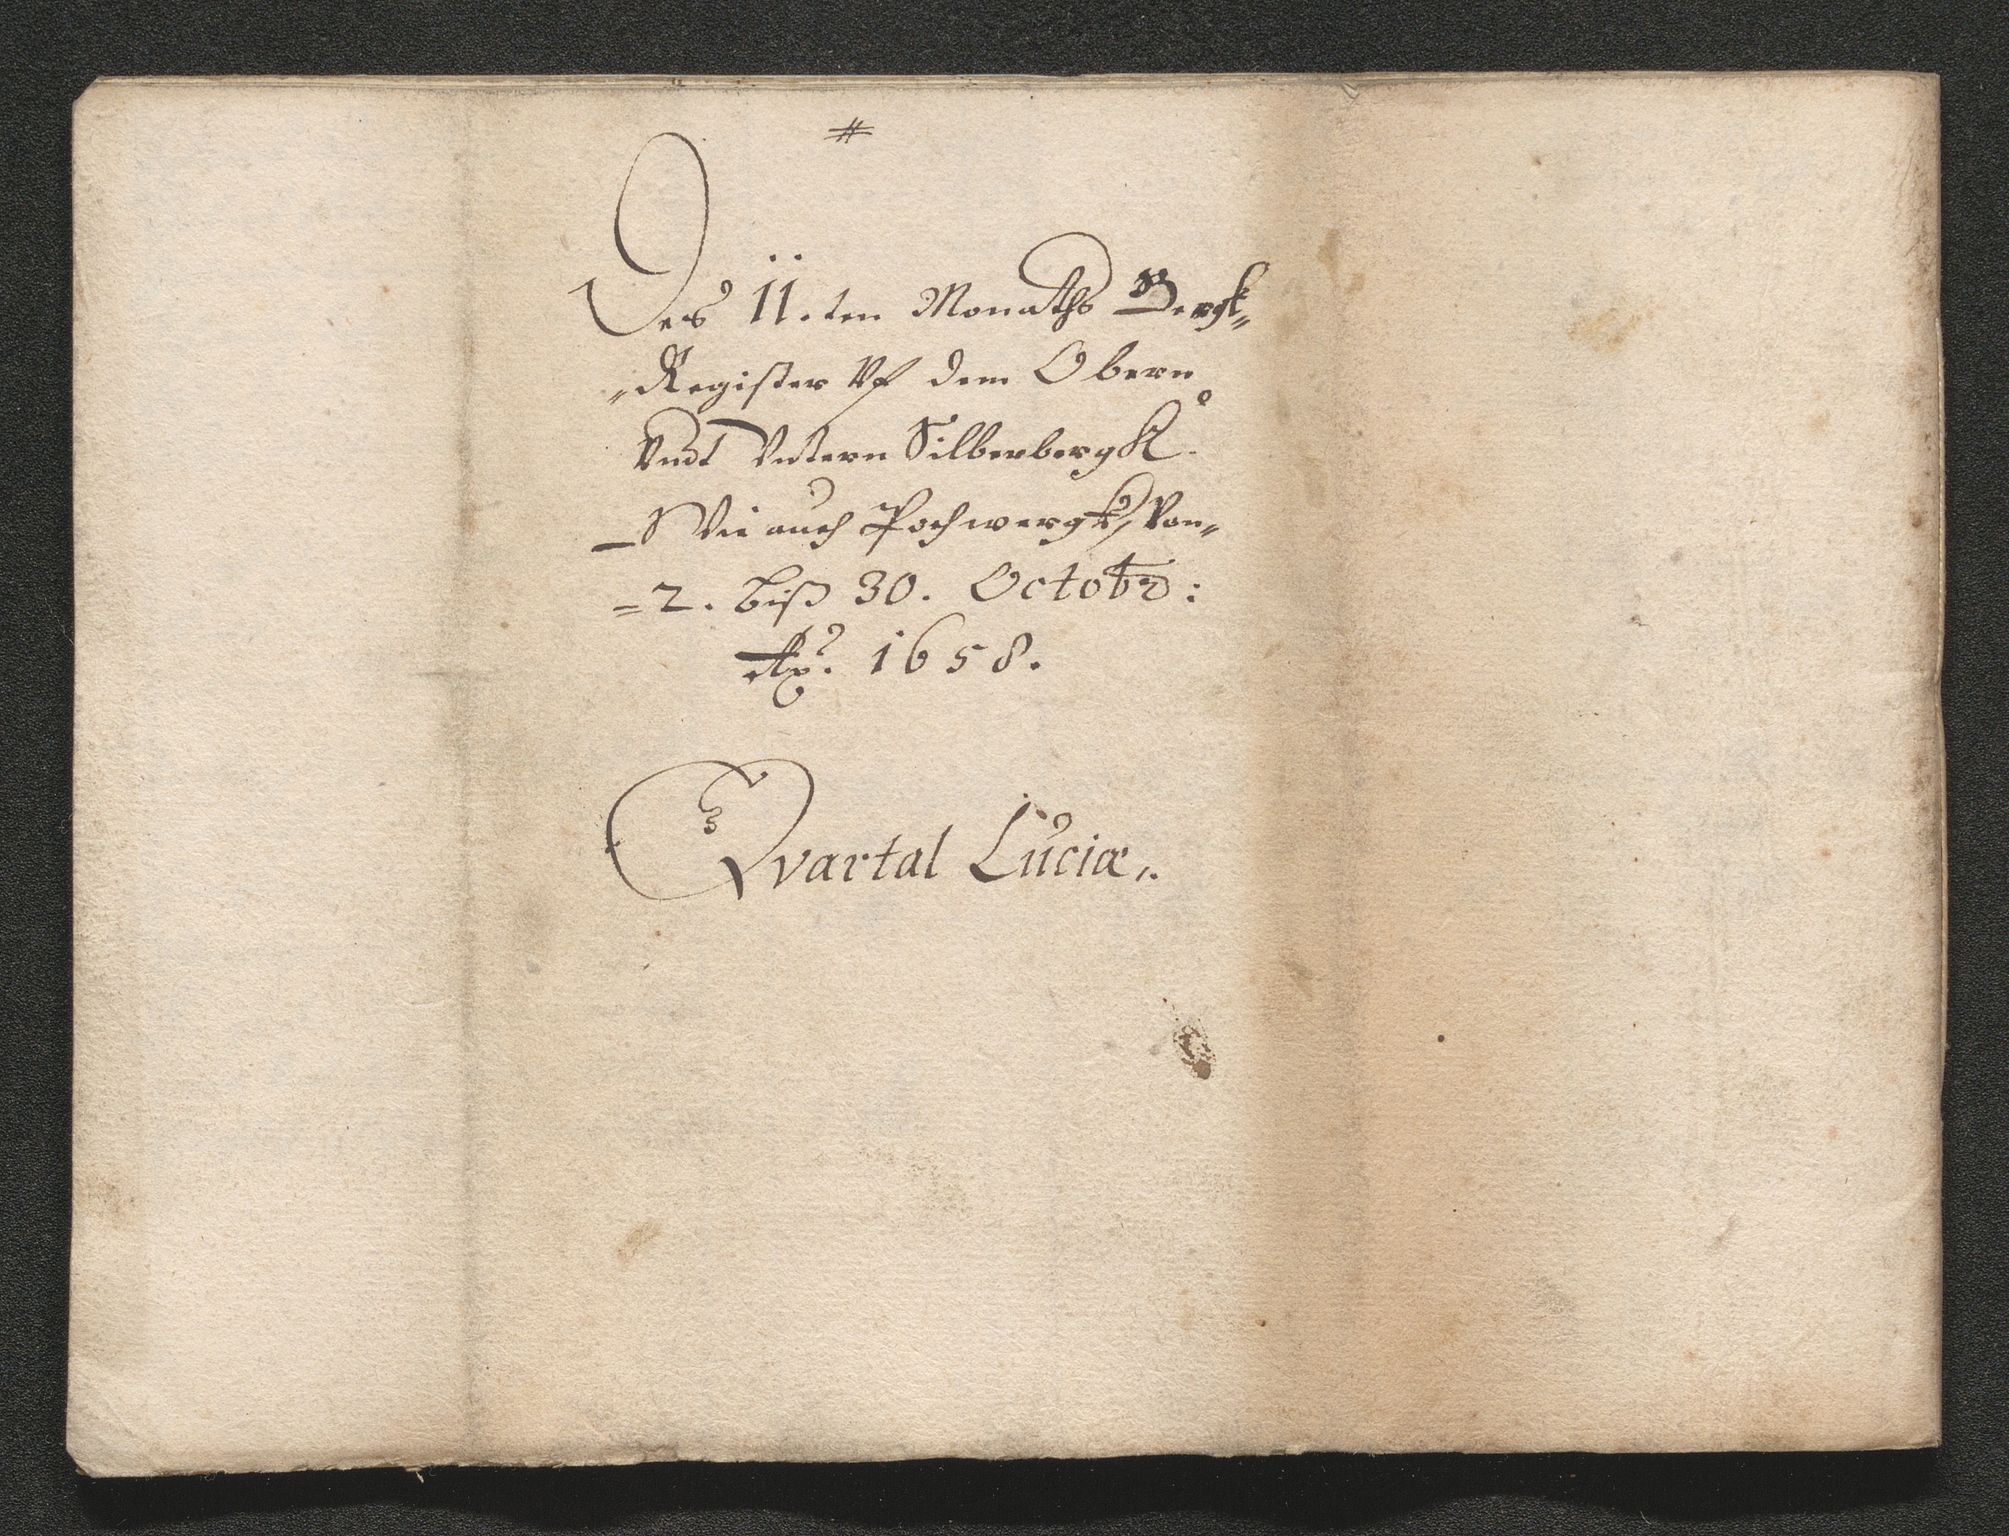 #
Des 11.ten Monaths Bergk=
=Register Vf dem Obern
Vndt Vntern Silberbergk.
Wie auch Pochwergk, Von=
=2. biß 30. Octobr:
Ao. 1658.
Qvartal Luciæ.